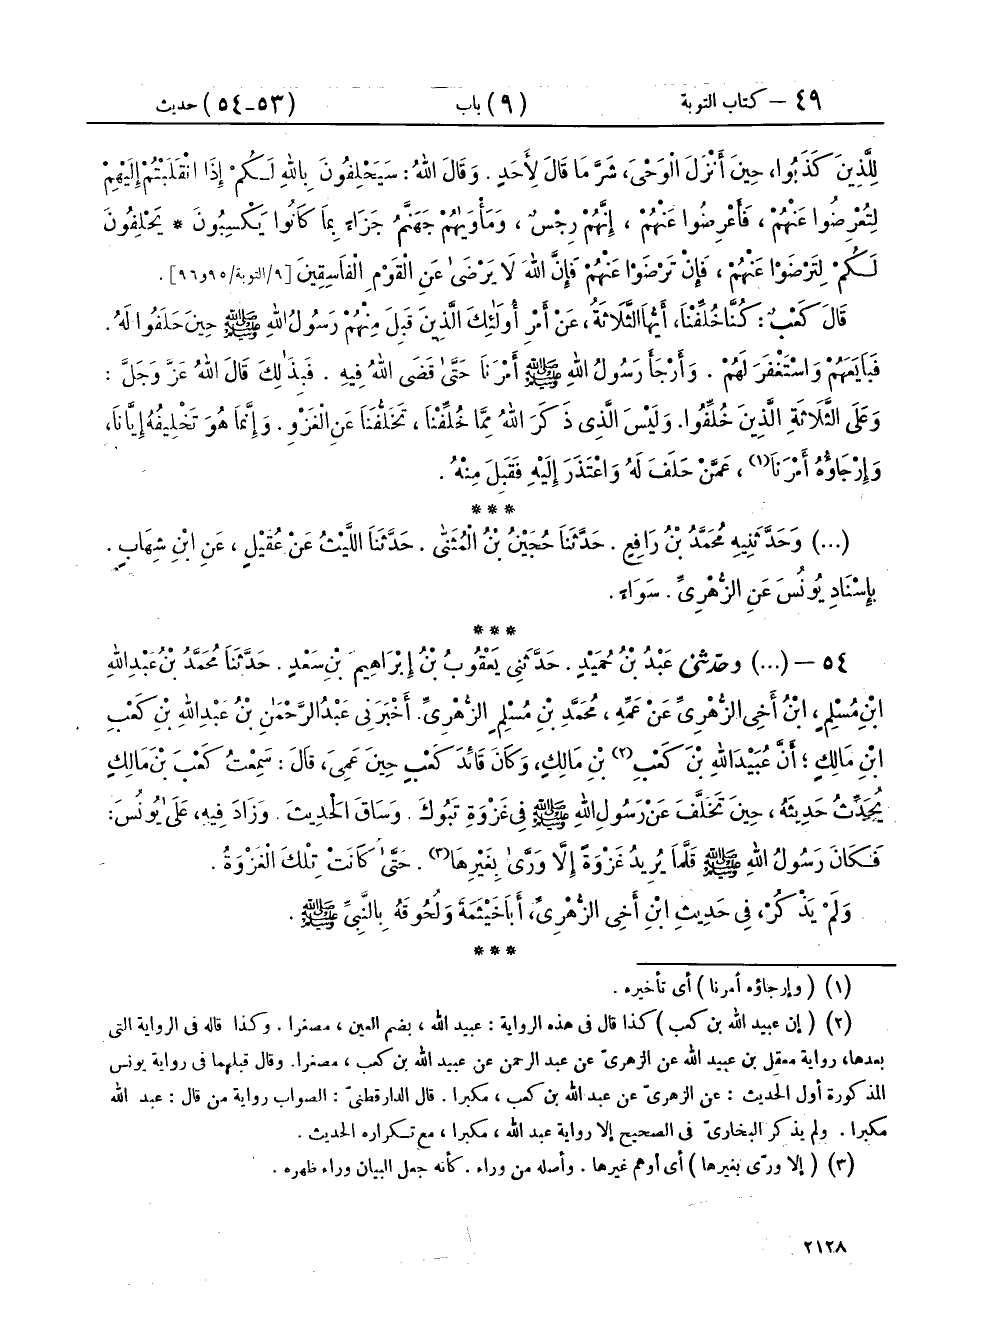 ٤٩ – كتاب التوبة (٩) باب (٥٣-٥٤) حديث
لِلَّذِينَ كَذَبُوا، حِينَ أَنْزَلَ الْوَحْيَ، شَرَّ مَا قَالَ لِأَحَدٍ. وَقَالَ اللهُ: سَيَحْلِفُونَ بِاللهِ لَكُمْ إِذَا انْقَلَبْتُمْ إِلَيْهِمْ
لِتُعْرِضُوا عَنْهُمْ، فَأَعْرِضُوا عَنْهُمْ، إِنَّهُمْ رِجْسٌ، وَمَأْوَيٰهُمْ جَهَنَّمُ جَزَاءً بِمَا كَانُوا يَكْسِبُونَ * يَحْلِفُونَ
لَكُمْ لِتَرْضَوْا عَنْهُمْ، فَإِنْ تَرْضَوْا عَنْهُمْ فَإِنَّ اللهَ لَا يَرْضَىٰ عَنِ الْقَوْمِ الْفَاسِقِينَ [٩/التوبة/٩٥ و٩٦].
قَالَ كَعْبٌ: كُنَّا خُلِّفْنَا، أَيُّهَا الثَّلَاثَةُ، عَنْ أَمْرِ أُولَئِكَ الَّذِينَ قَبِلَ مِنْهُمْ رَسُولُ اللهِ ﷺ حِينَ حَلَفُوا لَهُ.
فَبَايَعَهُمْ وَاسْتَغْفَرَ لَهُمْ. وَأَرْجَأَ رَسُولُ اللهِ ﷺ أَمْرَنَا حَتَّىٰ قَضَى اللهُ فِيهِ. فَبِذَلِكَ قَالَ اللهُ عَزَّ وَجَلَّ:
وَعَلَى الثَّلَاثَةِ الَّذِينَ خُلِّفُوا. وَلَيْسَ الَّذِي ذَكَرَ اللهُ مِمَّا خُلِّفْنَا، تَخَلُّفَنَا عَنِ الْغَزْوِ. وَإِنَّمَا هُوَ تَخْلِيفُهُ إِيَّانَا،
وَإِرْجَاؤُهُ أَمْرَنَا(١)، عَمَّنْ حَلَفَ لَهُ وَاعْتَذَرَ إِلَيْهِ فَقَبِلَ مِنْهُ.
* * *
(...) وَحَدَّثَنِيهِ مُحَمَّدُ بْنُ رَافِعٍ. حَدَّثَنَا حُجَيْنُ بْنُ الْمُثَنَّىٰ. حَدَّثَنَا اللَّيْثُ عَنْ عُقَيْلٍ، عَنِ ابْنِ شِهَابٍ.
بِإِسْنَادِ يُونُسَ عَنِ الزُّهْرِيِّ. سَوَاءً.
* * *
٥٤ – (...) وحدثني عَبْدُ بْنُ حُمَيْدٍ. حَدَّثَنِي يَعْقُوبُ بْنُ إِبْرَاهِيمَ بْنِ سَعْدٍ. حَدَّثَنَا مُحَمَّدُ بْنُ عَبْدِ اللهِ
ابْنِ مُسْلِمٍ، ابْنُ أَخِي الزُّهْرِيِّ عَنْ عَمِّهِ، مُحَمَّدِ بْنِ مُسْلِمٍ الزُّهْرِيِّ. أَخْبَرَنِي عَبْدُ الرَّحْمَٰنِ بْنُ عَبْدِ اللهِ بْنِ كَعْبِ
ابْنِ مَالِكٍ؛ أَنَّ عُبَيْدَ اللهِ بْنَ كَعْبِ(٢) بْنِ مَالِكٍ، وَكَانَ قَائِدَ كَعْبٍ حِينَ عَمِيَ، قَالَ: سَمِعْتُ كَعْبَ بْنَ مَالِكٍ
يُحَدِّثُ حَدِيثَهُ، حِينَ تَخَلَّفَ عَنْ رَسُولِ اللهِ ﷺ فِي غَزْوَةِ تَبُوكَ. وَسَاقَ الْحَدِيثَ. وَزَادَ فِيهِ، عَلَىٰ يُونُسَ:
فَكَانَ رَسُولُ اللهِ ﷺ قَلَّمَا يُرِيدُ غَزْوَةً إِلَّا وَرَّىٰ بِغَيْرِهَا(٣). حَتَّىٰ كَانَتْ تِلْكَ الْغَزْوَةُ.
وَلَمْ يَذْكُرْ، فِي حَدِيثِ ابْنِ أَخِي الزُّهْرِيِّ، أَبَا خَيْثَمَةَ وَلُحُوقَهُ بِالنَّبِيِّ ﷺ.
* * *
(١) (وإرجاؤه أمرنا) أى تأخيره.
(٢) (إن عبيد الله بن كعب) كذا قال فى هذه الرواية: عبيد الله، بضم العين، مصغرا. وكذا قاله فى الرواية التى
بعدها، رواية معقل بن عبيد الله عن الزهرىّ عن عبد الرحمن عن عبيد الله بن كعب، مصغرا. وقال قبلهما فى رواية يونس
المذكورة أول الحديث: عن الزهرىّ عن عبد الله بن كعب، مكبرا. قال الدارقطنىّ: الصواب رواية من قال: عبد الله
مكبرا. ولم يذكر البخارىّ فى الصحيح إلا رواية عبد الله، مكبرا، مع تكراره الحديث.
(٣) (إلا ورّى بغيرها) أى أوهم غيرها. وأصله من وراء. كأنه جعل البيان وراء ظهره.
٢١٢٨